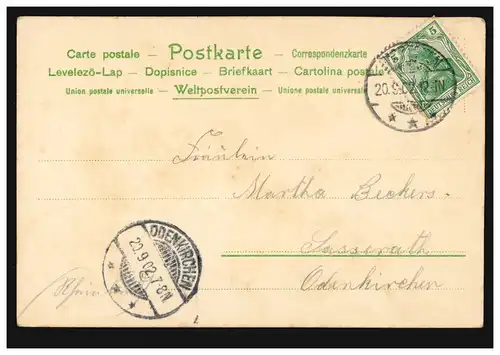 Carte postale - Postkarte - Correspondenzkarte
Levelezö-Lap - Dopisnice - Briefkaart - Cartolina postale
Union postale universelle - Weltpostverein - Unione postale universale
5
20.9.02.12-1N
Fräulein
Martha Beckers.
Sasserath
Odenkirchen
ODENKIRCHEN
20.9.02.7-8N
Rhein